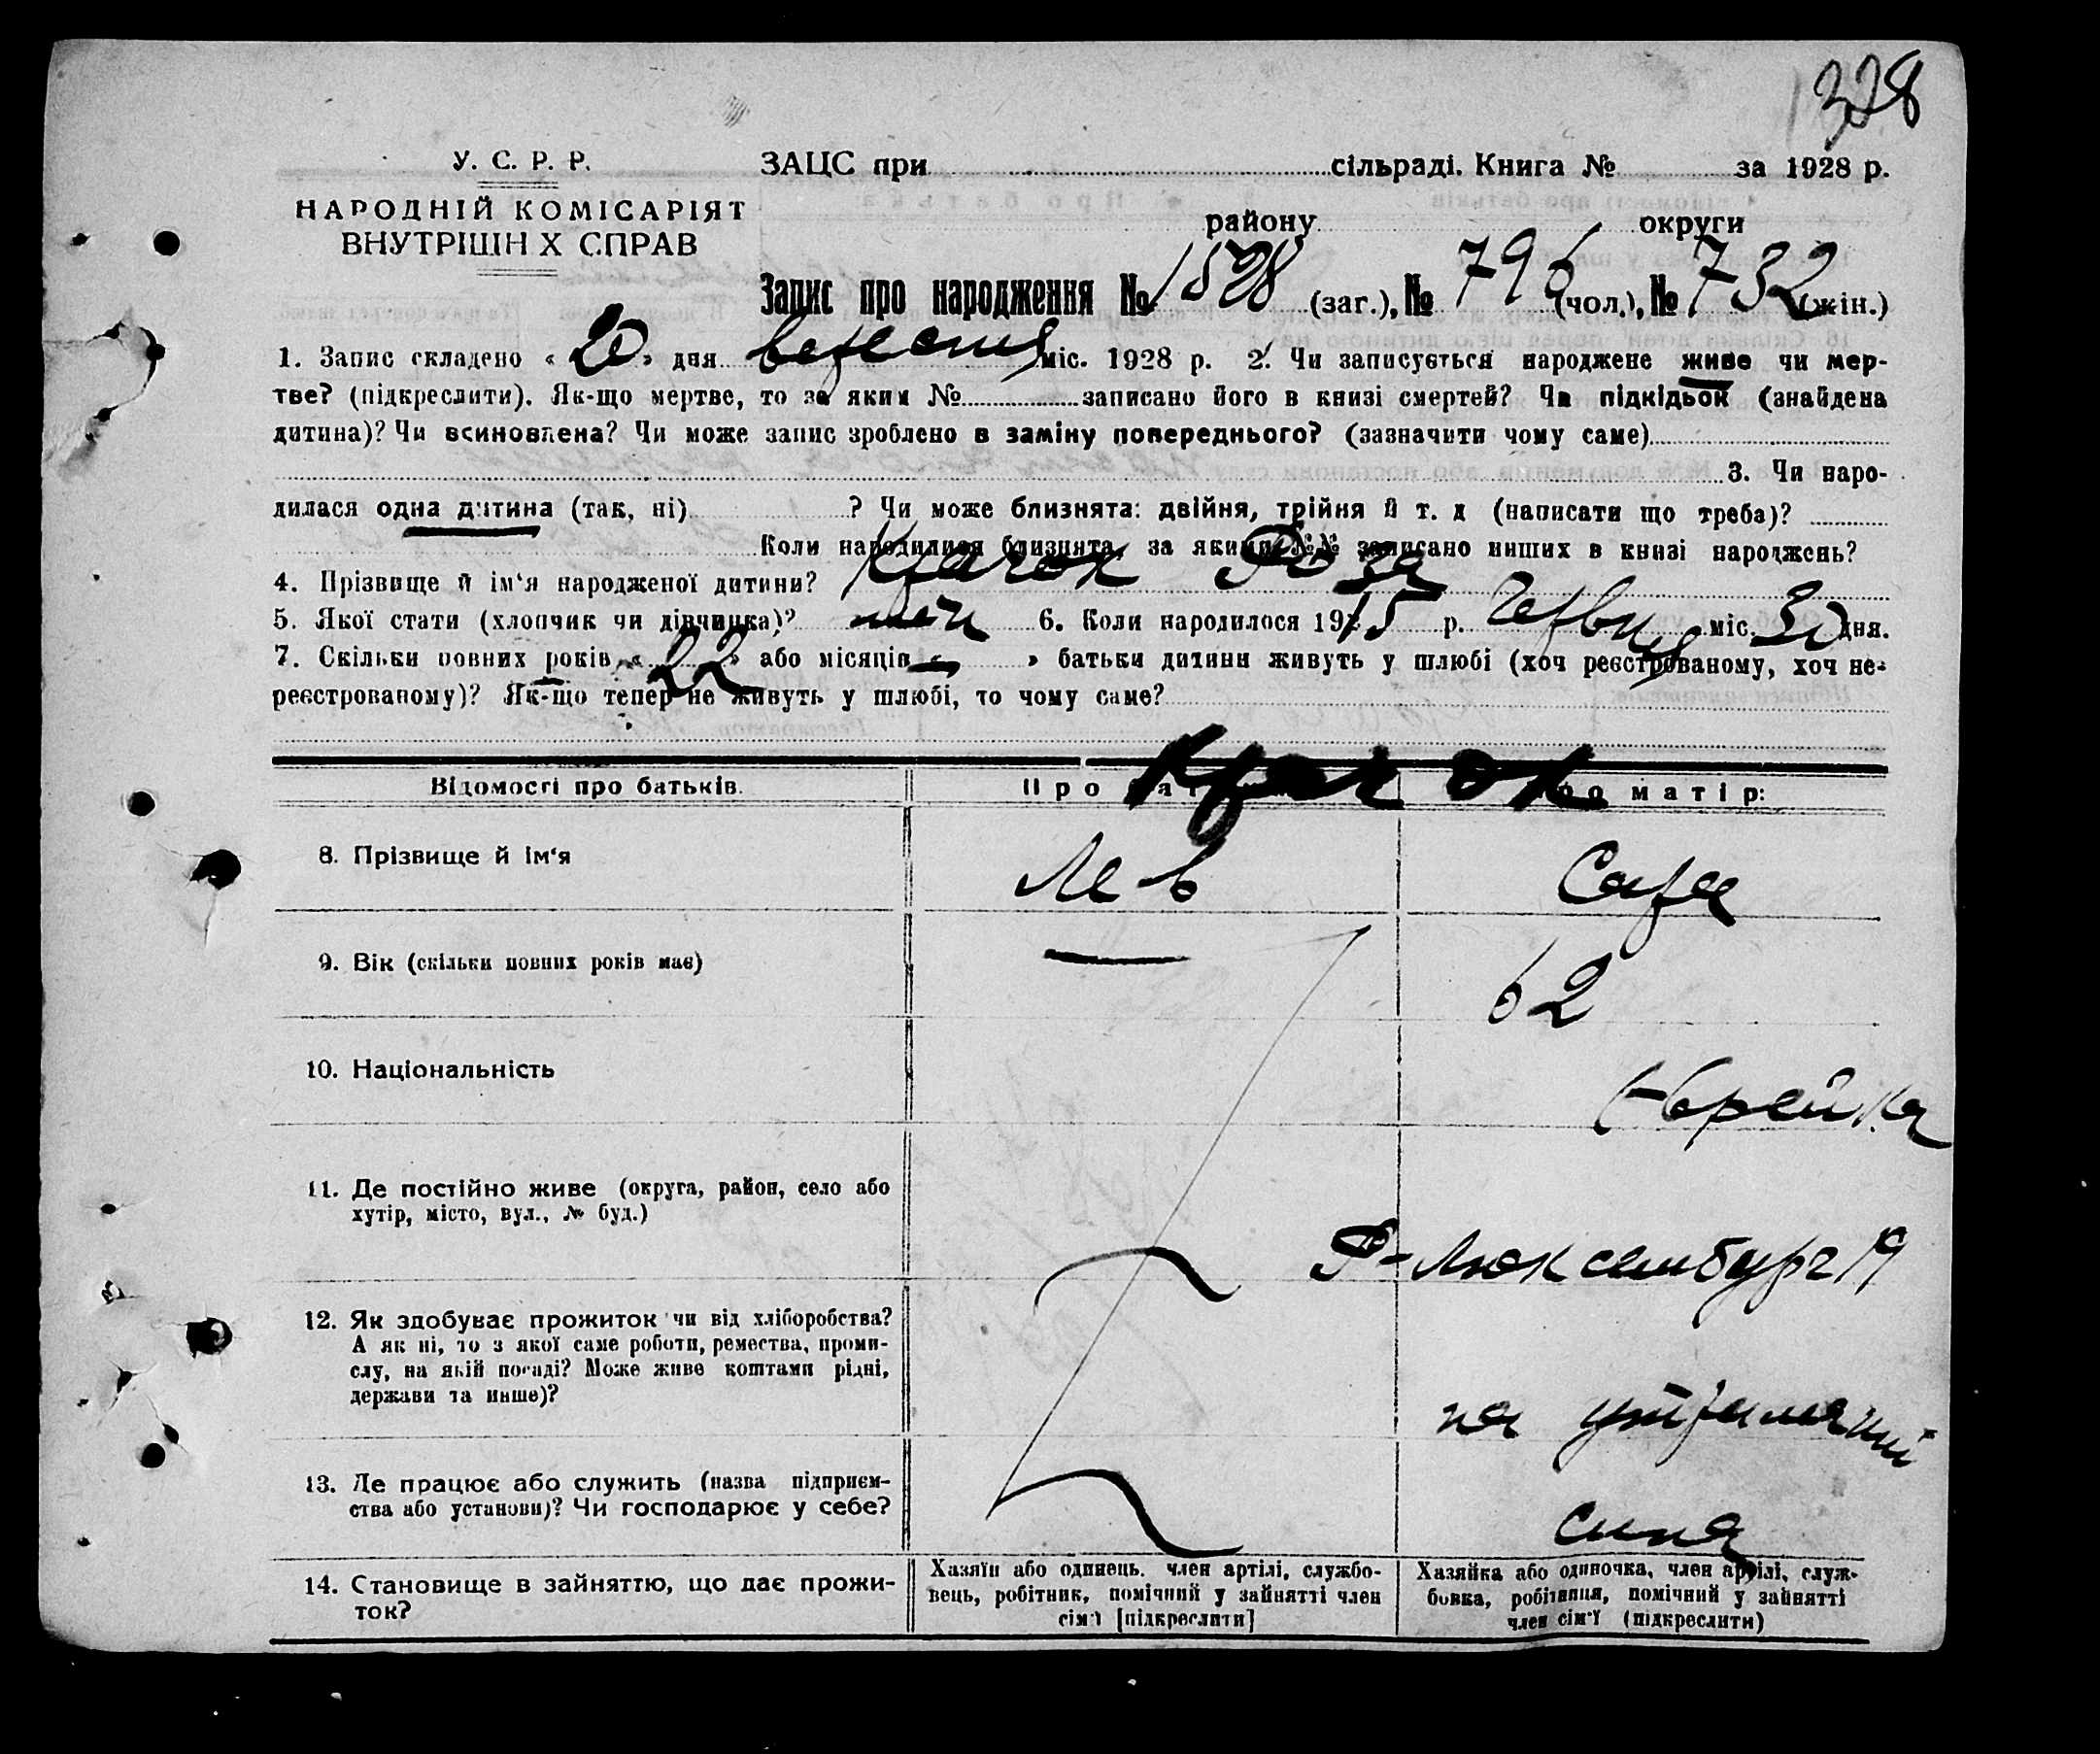 328
У. С. Р. Р.
НАРОДНІЙ КОМІСАРІЯТ
ВНУТРІШН Х СПРАВ
ЗАЦС при сільраді. Книга № за 1928 р.
району округи
Запис про народження № 1528 (заг.), № 796 (чол.), № 732 (жін.)
1. Запис складено « 20 » дня вересня міс. 1928 р. 2. Чи записується народжене живе чи мер-
тве? (підкреслити). Як-що мертве, то за яким № записано його в книзі смертей? Чи підкідьок (знайдена
дитина)? Чи всиновлена? Чи може запис зроблено в заміну попереднього? (зазначити чому саме)
3. Чи наро-
дилася одна дитина (так, ні) ? Чи може близнята: двійня, трійня й т. д (написати що треба)?
Коли народилися близнята, за якими №№ записано инших в книзі народжень?
4. Прізвище й ім‘я народженої дитини? Крачок Роза
5. Якої стати (хлопчик чи дівчинка)? 6. Коли народилося 1915 р. червня міс. 30 дня.
7. Скільки повних років « 22 » або місяців « — » батьки дитини живуть у шлюбі (хоч реєстрованому, хоч не-
реєстрованому)? Як-що тепер не живуть у шлюбі, то чому саме?
Крачок
Відомості про батьків. Про батька: Про матір:
8. Прізвище й ім‘я Лев Сара
9. Вік (скільки повних років має) — 62
10. Національність Єврейка
11. Де постійно живе (округа, район, село або
хутір, місто, вул., № буд.)
Р-Люксембург 19
12. Як здобуває прожиток чи від хліборобства?
А як ні, то з якої саме роботи, ремества, проми-
слу, на якій посаді? Може живе коштами рідні,
держави та инше)?
на утриманні
13. Де працює або служить (назва підприєм-
ства або установи)? Чи господарює у себе?
сина
14. Становище в зайняттю, що дає прожи-
ток?
Хазяїн або одинець. член артілі, службо-
вець, робітник, помічний у зайнятті член
сім‘ї [підкреслити]
Хазяйка або одиночка, член артілі, служ-
бовка, робітниця, помічний у зайнятті
член сім‘ї (підкреслити)